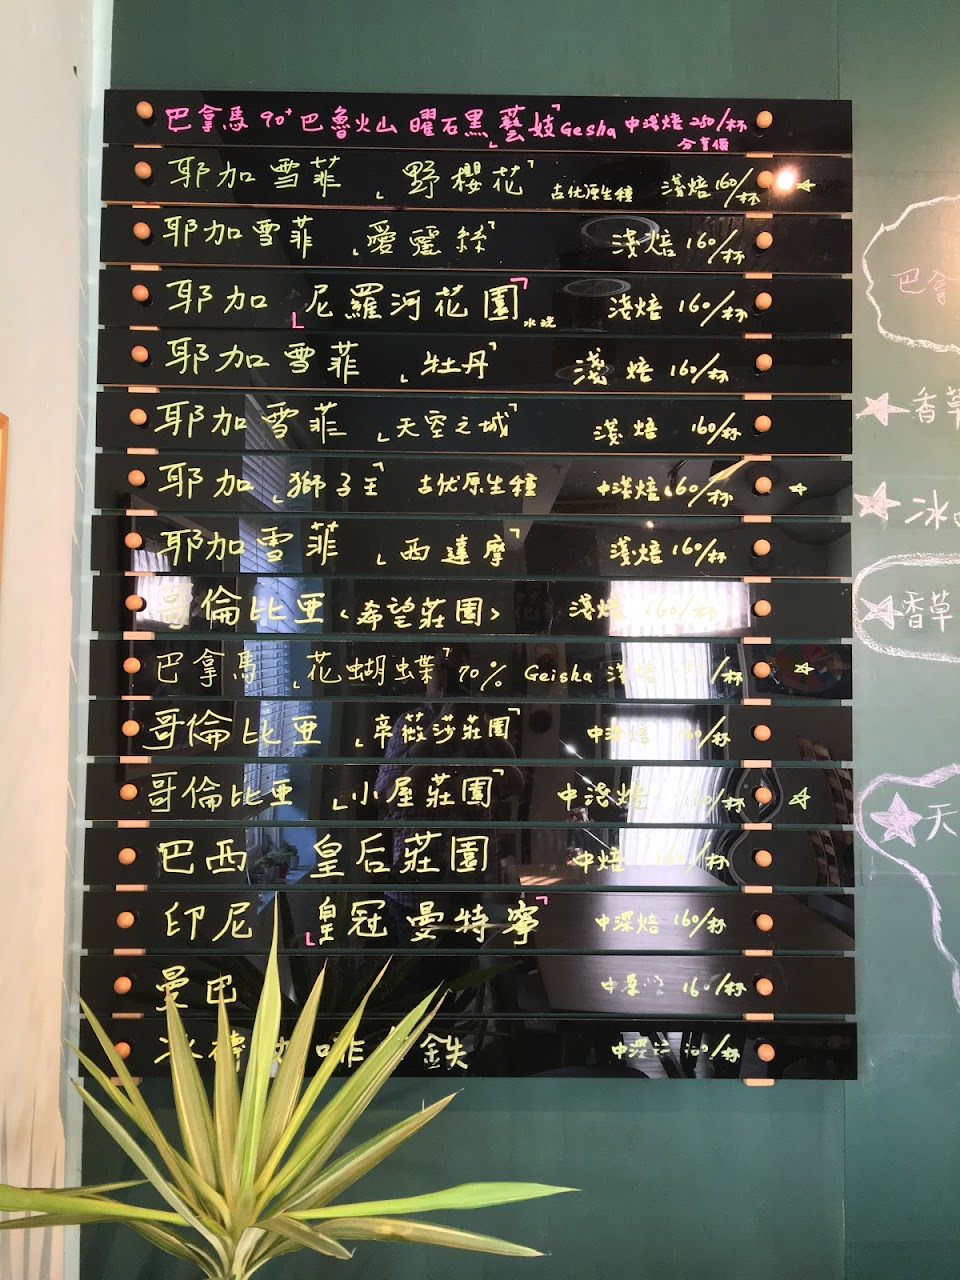 巴拿馬 90+ 巴魯火山 曜石黑「藝妓」Gesha 中淺焙 250/杯
分享價
耶加雪菲 「野櫻花」 古優原生種 淺焙 160/杯 ☆
耶加雪菲 「愛靈絲」 淺焙 160/杯
耶加「尼羅河花園」水洗 淺焙 160/杯
耶加雪菲 「牡丹」 淺焙 160/杯
耶加雪菲 「天空之城」 淺焙 160/杯
耶加「獅子王」 古優原生種 中淺焙 160/杯 ☆
耶加雪菲 「西達摩」 淺焙 160/杯
哥倫比亞〈希望莊園〉 淺焙 160/杯
巴拿馬「花蝴蝶」70% Geisha 淺焙 /杯 ☆
哥倫比亞「帝薇莎莊園」 中焙 160/杯
哥倫比亞 「小屋莊園」 中淺焙 160/杯 ☆
巴西 皇后莊園 中焙 160/杯
印尼 「皇冠曼特寧」 中深焙 160/杯
曼巴 中 160/杯
冰 啡 鉄 中深 /杯
巴拿
★香草
★冰
★香草
★天